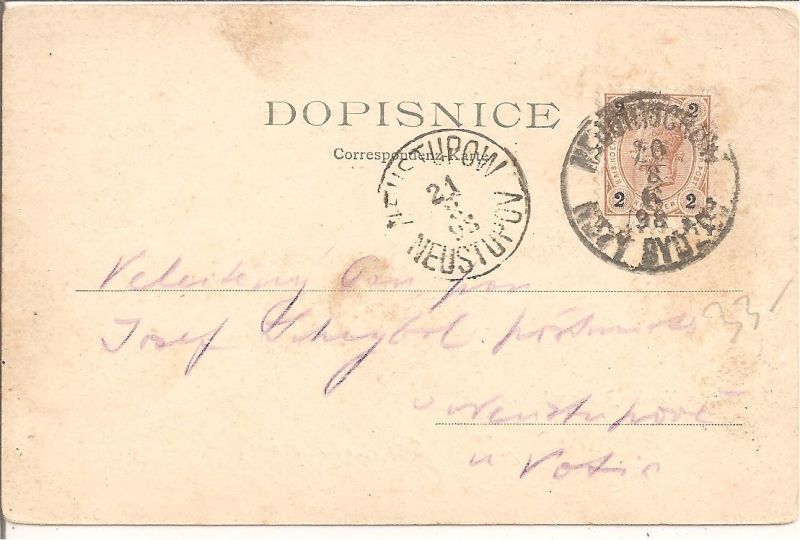 DOPISNICE
Correspondenz-Karte
NEUSTUPOW
21
8
98
NEUSTUPOV
20
8
6
98
NOVÝ BYDŽOV
2 2
2 2
Velectěný Pan pan
Josef
v Neustupově
u Votic
33